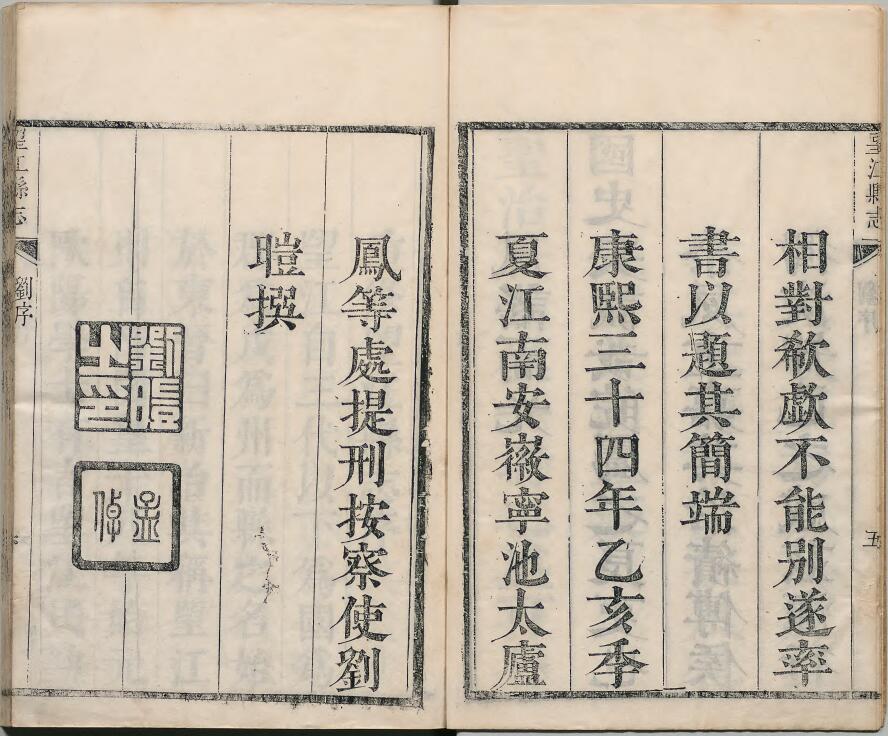 望江縣志
五
相對欷歔不能别遂率
書以題其簡端
康熙三十四年乙亥季
夏江南安𡽪寧池太廬
鳳等處提刑按察使劉
暟撰
劉暟之印
望江縣志
劉序